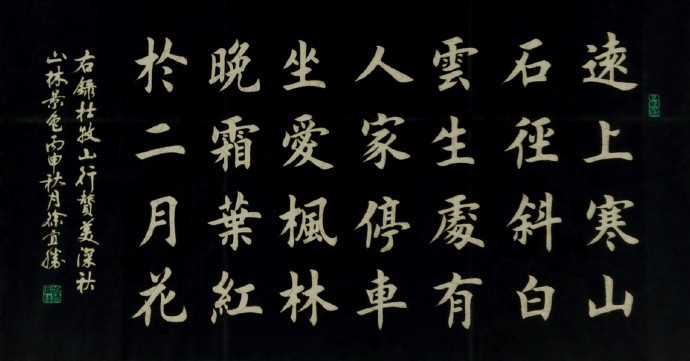 遠上寒山
石徑斜白
雲生處有
人家停車
坐愛楓林
晚霜葉紅
於二月花
右錄杜牧山行贊美深秋
山林景色丙申秋月徐宜勝